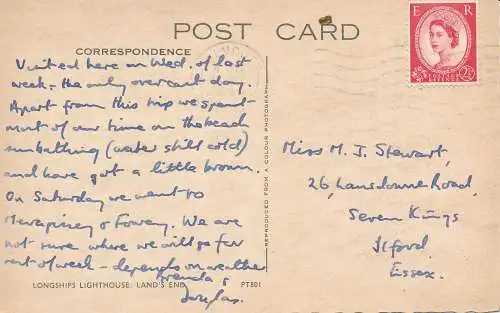 POST CARD
CORRESPONDENCE
Visited here on Wed. of last
week - the only overcast day.
Apart from this trip we spent
most of our time on the beach
sunbathing (water still cold)
and have got a little brown.
On Saturday we went to
Mevagissey & Fowey. We are
not sure where we will go for
rest of week - depends on weather
Brenda &
Douglas.
LONGSHIPS LIGHTHOUSE, LAND'S END
PT801
REPRODUCED FROM A COLOUR PHOTOGRAPH
E R
2½
Miss M. J. Stewart,
26, Lansdowne Road,
Seven Kings
Ilford,
Essex.